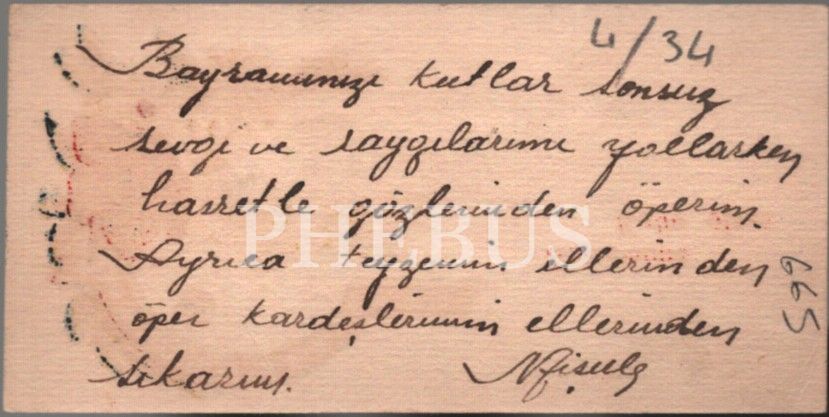 4/34
Bayramınızı kutlar sonsuz
sevgi ve saygılarımı yollarken
hasretle gözlerinden öperim.
Ayrıca teyzemin ellerinden
öper kardeşlerimin ellerinden
sıkarım.
PHEBUS
599